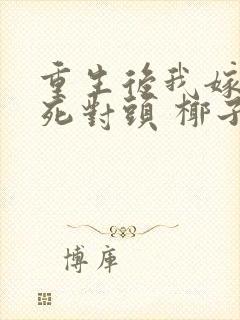 重生後我嫁
死對頭 椰子
博庫